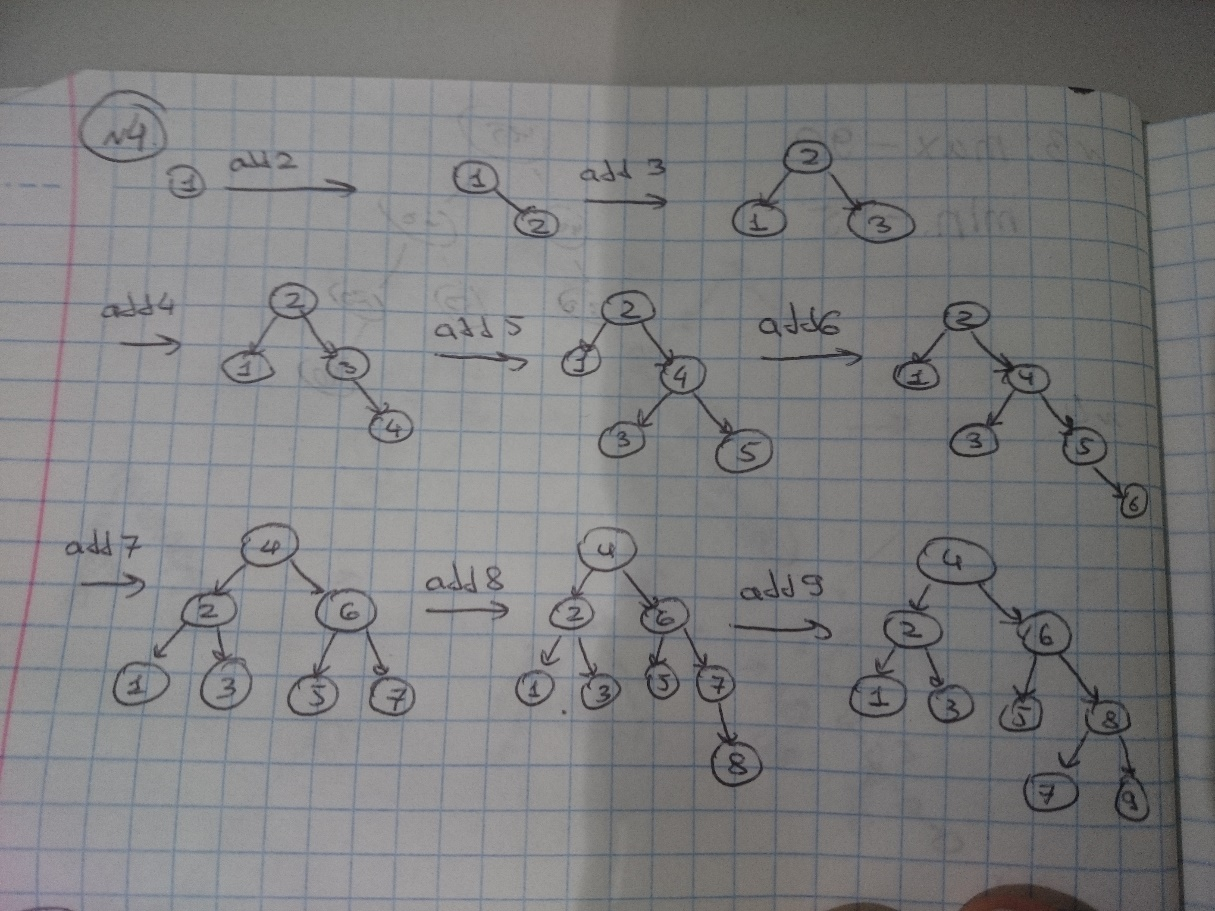 №4
1 add 2 1 2 add 3 2 1 3
add4 2 1 3 4 add 5 2 1 4 3 5 add6 2 1 4 3 5 6
add7 4 2 6 1 3 5 7 add8 4 2 6 1 3 5 7 8 add9 4 2 6 1 3 5 8 7 9